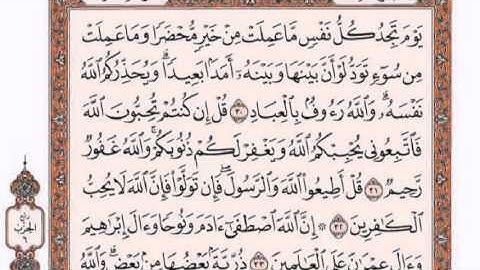 يَوْمَ تَجِدُ كُلُّ نَفْسٍ مَّا عَمِلَتْ مِنْ خَيْرٍ مُّحْضَرًا وَمَا عَمِلَتْ
مِن سُوٓءٍ تَوَدُّ لَوْ أَنَّ بَيْنَهَا وَبَيْنَهُۥٓ أَمَدًۢا بَعِيدًا ۗ وَيُحَذِّرُكُمُ ٱللَّهُ
نَفْسَهُۥ ۗ وَٱللَّهُ رَءُوفٌۢ بِٱلْعِبَادِ ٣٠ قُلْ إِن كُنتُمْ تُحِبُّونَ ٱللَّهَ
فَٱتَّبِعُونِى يُحْبِبْكُمُ ٱللَّهُ وَيَغْفِرْ لَكُمْ ذُنُوبَكُمْ ۗ وَٱللَّهُ غَفُورٌ
رَّحِيمٌ ٣١ قُلْ أَطِيعُوا۟ ٱللَّهَ وَٱلرَّسُولَ ۖ فَإِن تَوَلَّوْا۟ فَإِنَّ ٱللَّهَ لَا يُحِبُّ
ٱلْكَٰفِرِينَ ٣٢ ۞ إِنَّ ٱللَّهَ ٱصْطَفَىٰٓ ءَادَمَ وَنُوحًا وَءَالَ إِبْرَٰهِيمَ
وَءَالَ عِمْرَٰنَ عَلَى ٱلْعَٰلَمِينَ ٣٣ ذُرِّيَّةًۢ بَعْضُهَا مِنۢ بَعْضٍ ۗ وَٱللَّهُ
ربع
الحزب
٦